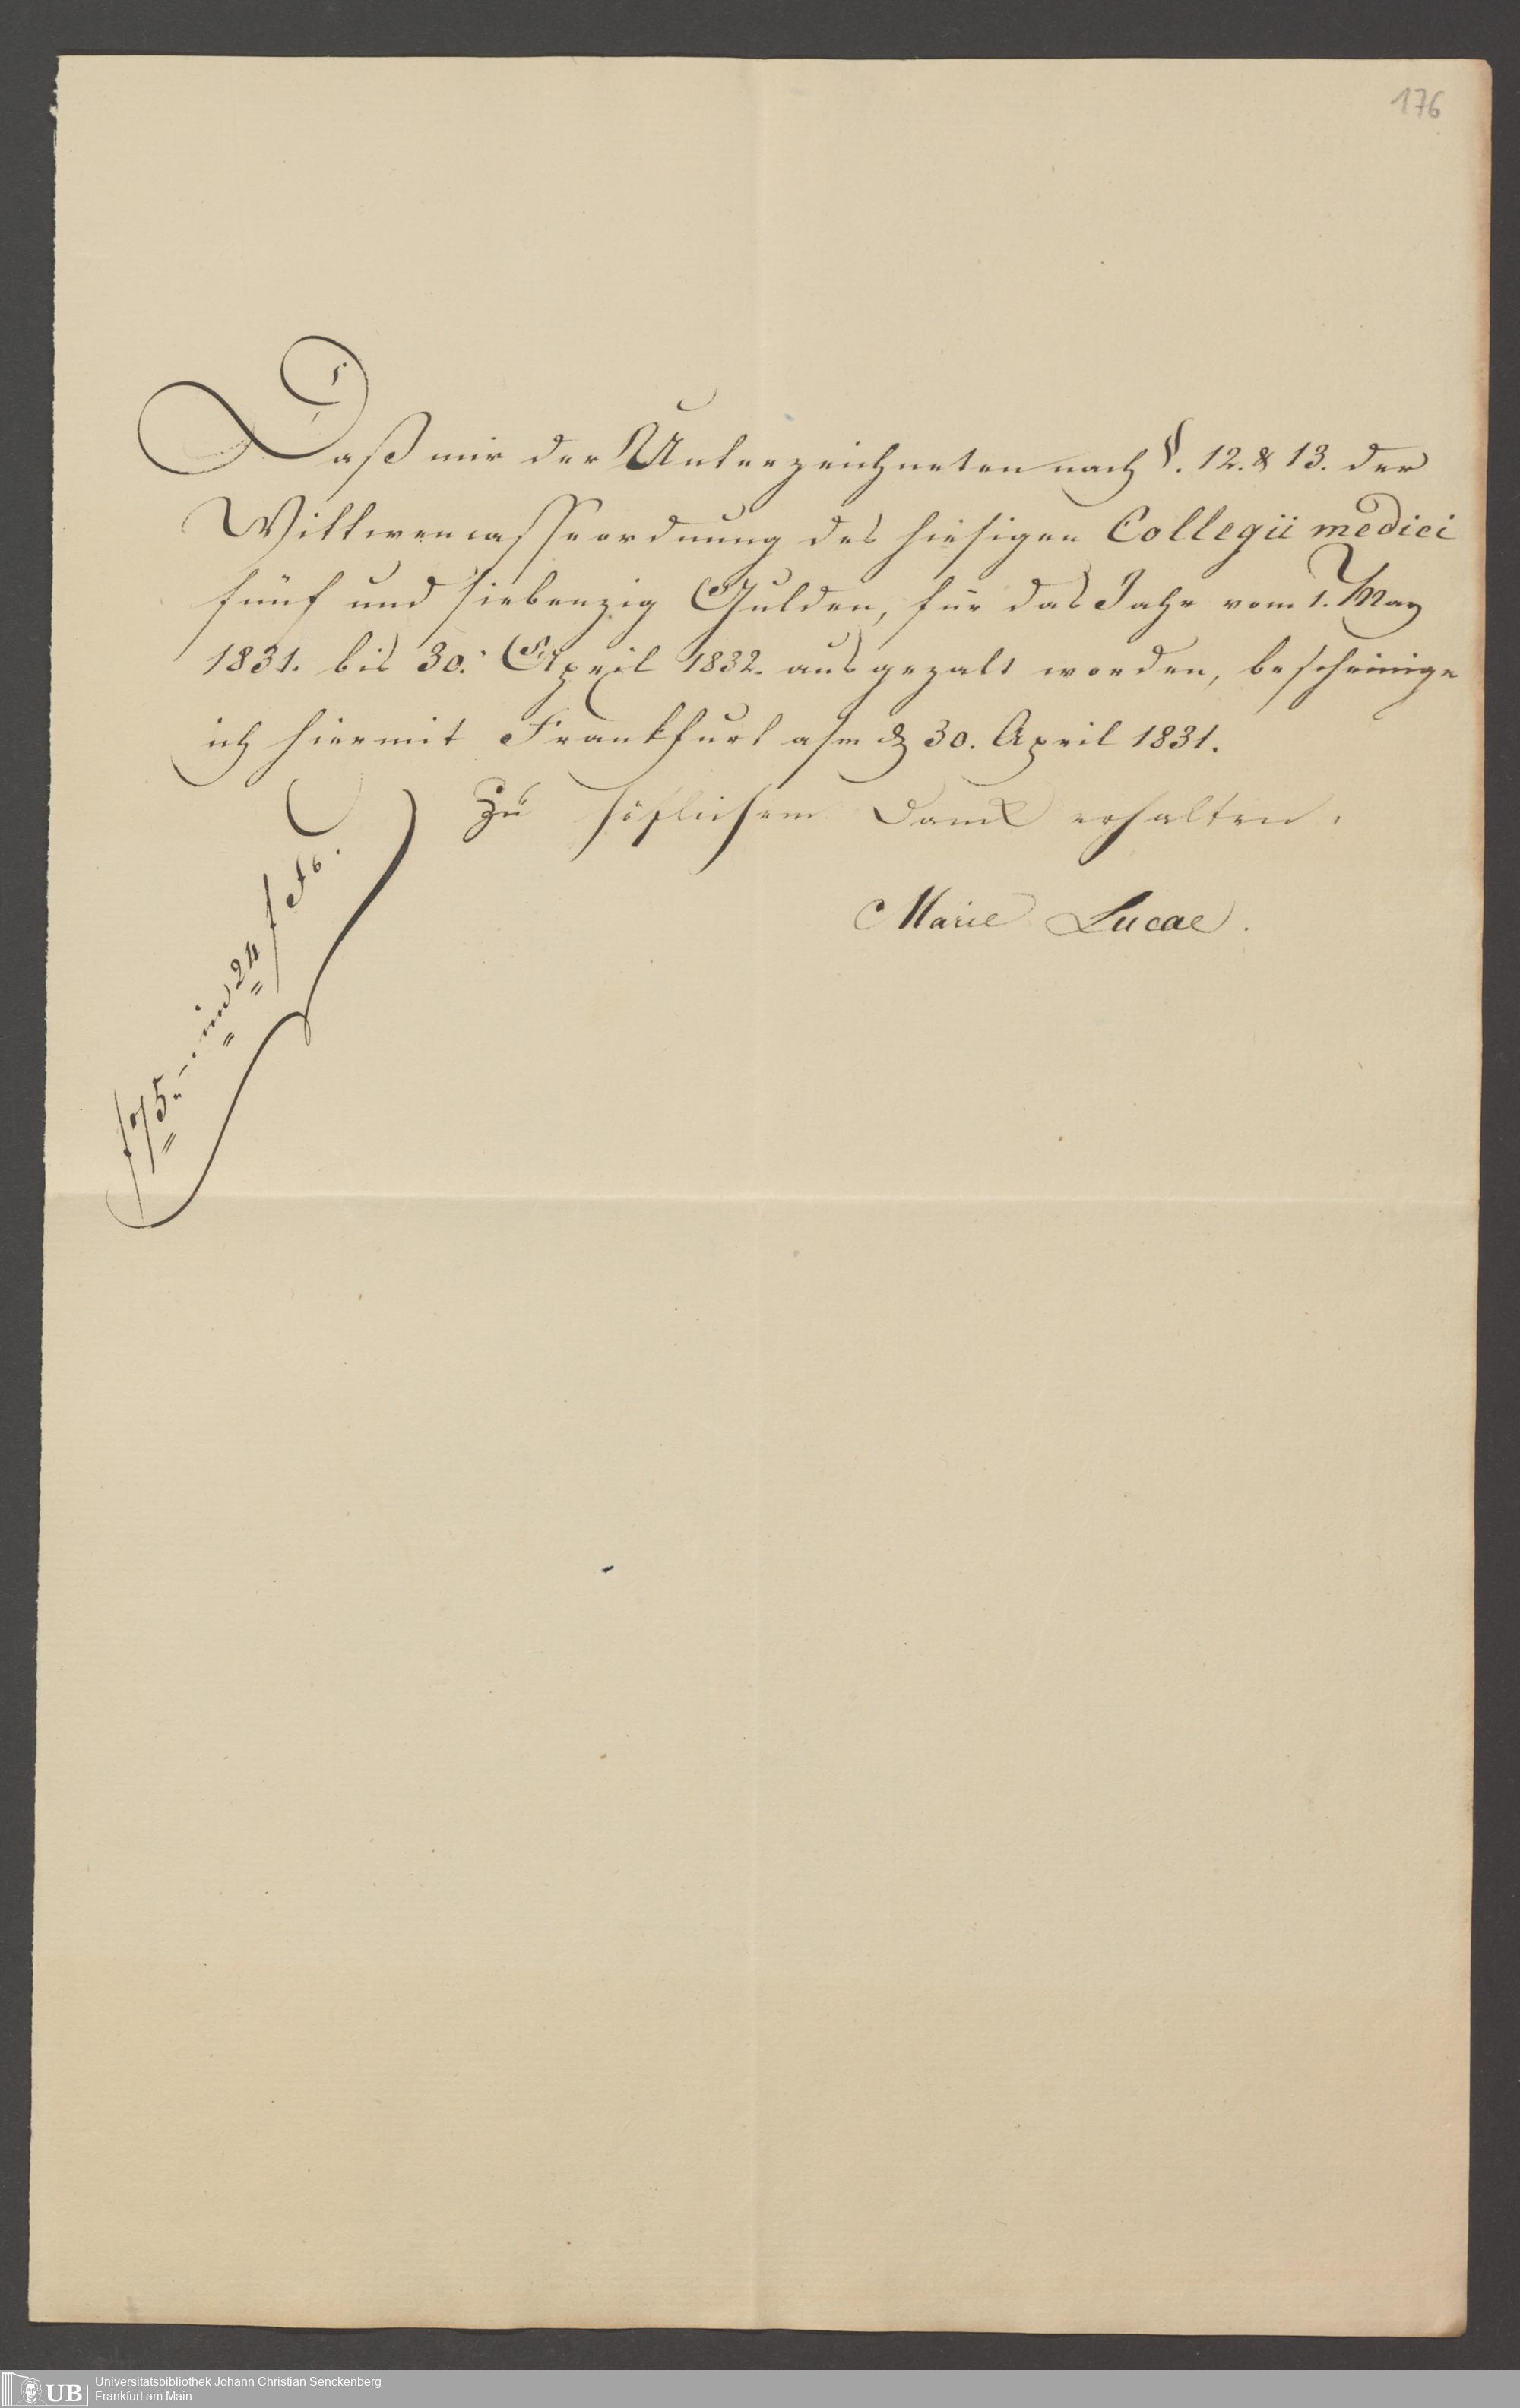 176
Daß mir der Unterzeichneten nach §. 12. & 13. der
Wittwencasseordnung des hiesigen Collegii medici
fünf und siebenzig Gulden, für das Jahr vom 1. May
1831. bis 30. April 1832. ausgezalt worden, bescheinige
ich hiermit Frankfurt a/m d 30. April 1831.
Zu höflichem Dank erhalten.
Marie Lucae.
f 75. -. in 24 f
UB
Universitätsbibliothek Johann Christian Senckenberg
Frankfurt am Main